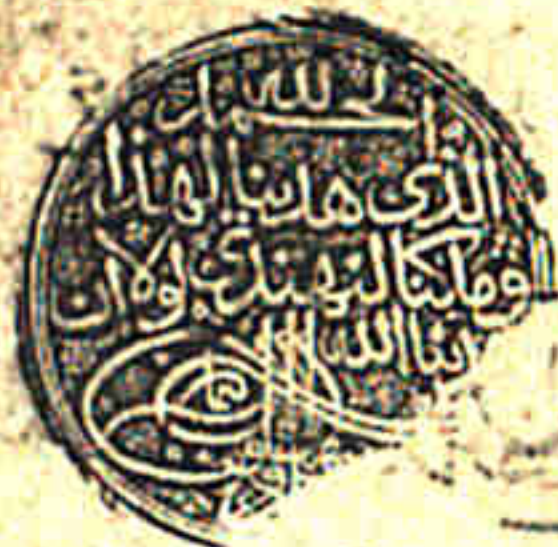 الحمد لله
الذي هدينا لهذا
وما كنا لنهتدي لولا ان
ينا الله